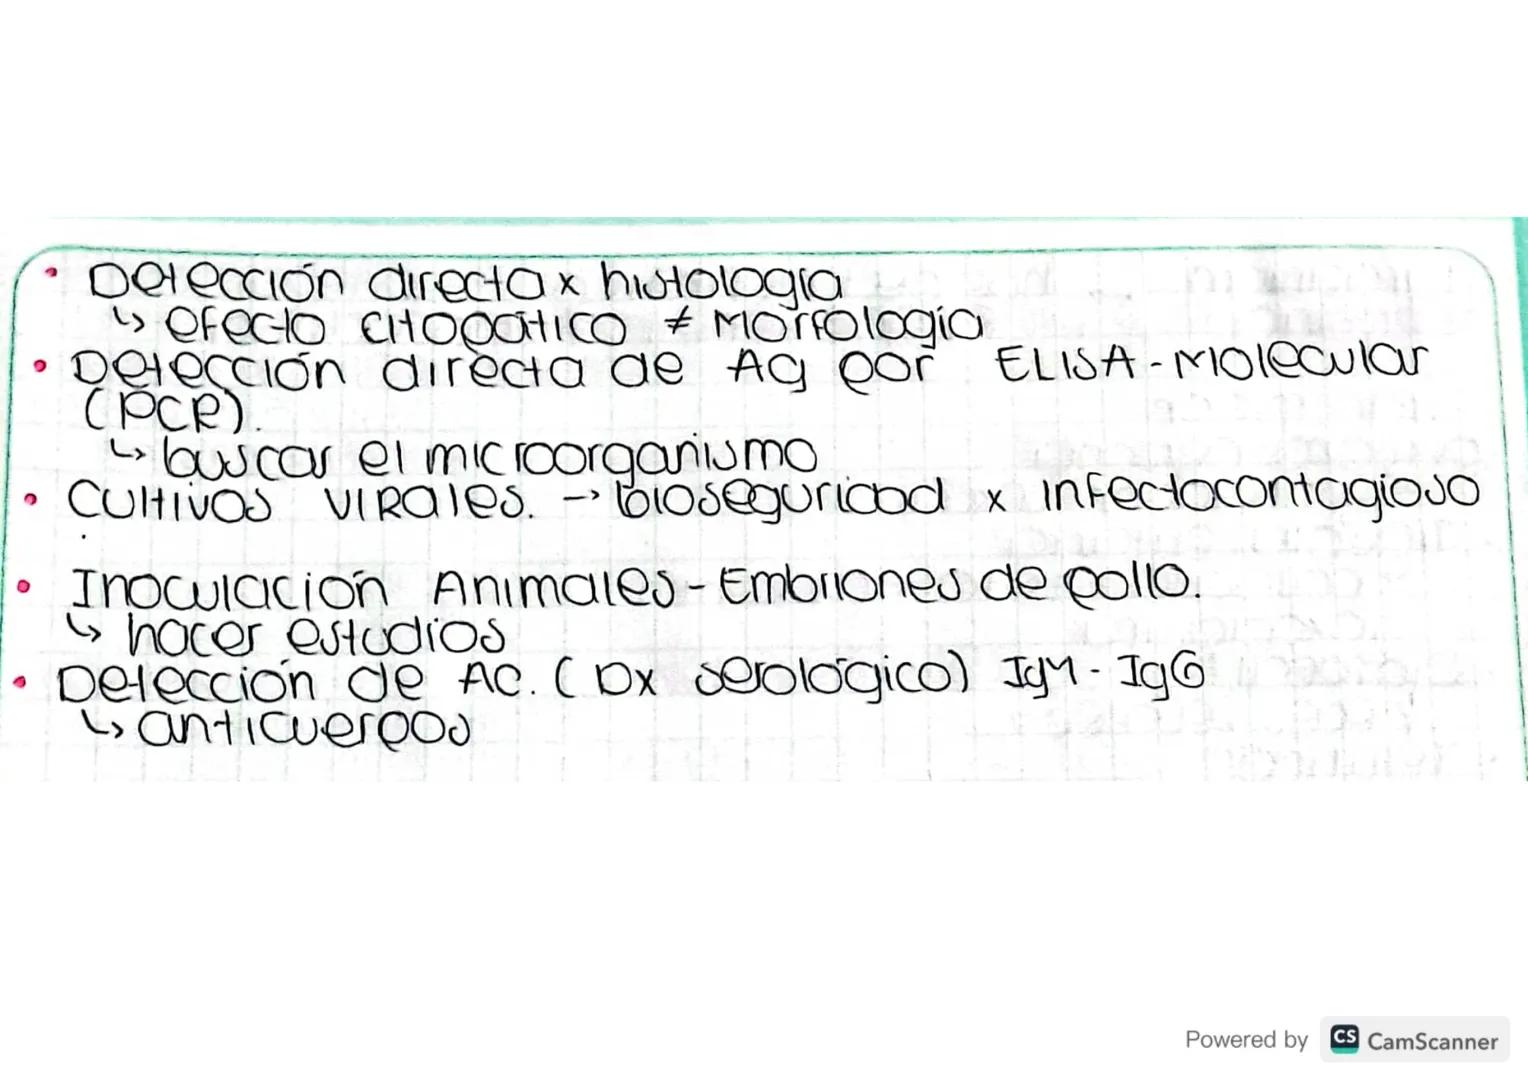 • Detección directa x histología
↳ efecto citopático ≠ Morfología
• Detección directa de Ag por ELISA - Molecular
(PCR).
↳ buscar el microorganismo
• Cultivos virales. → bioseguridad x infectocontagioso
• Inoculación Animales - Embriones de pollo.
↳ hacer estudios
• Detección de AC. ( Dx serológico) IgM - IgG
↳ anticuerpos
Powered by CS CamScanner